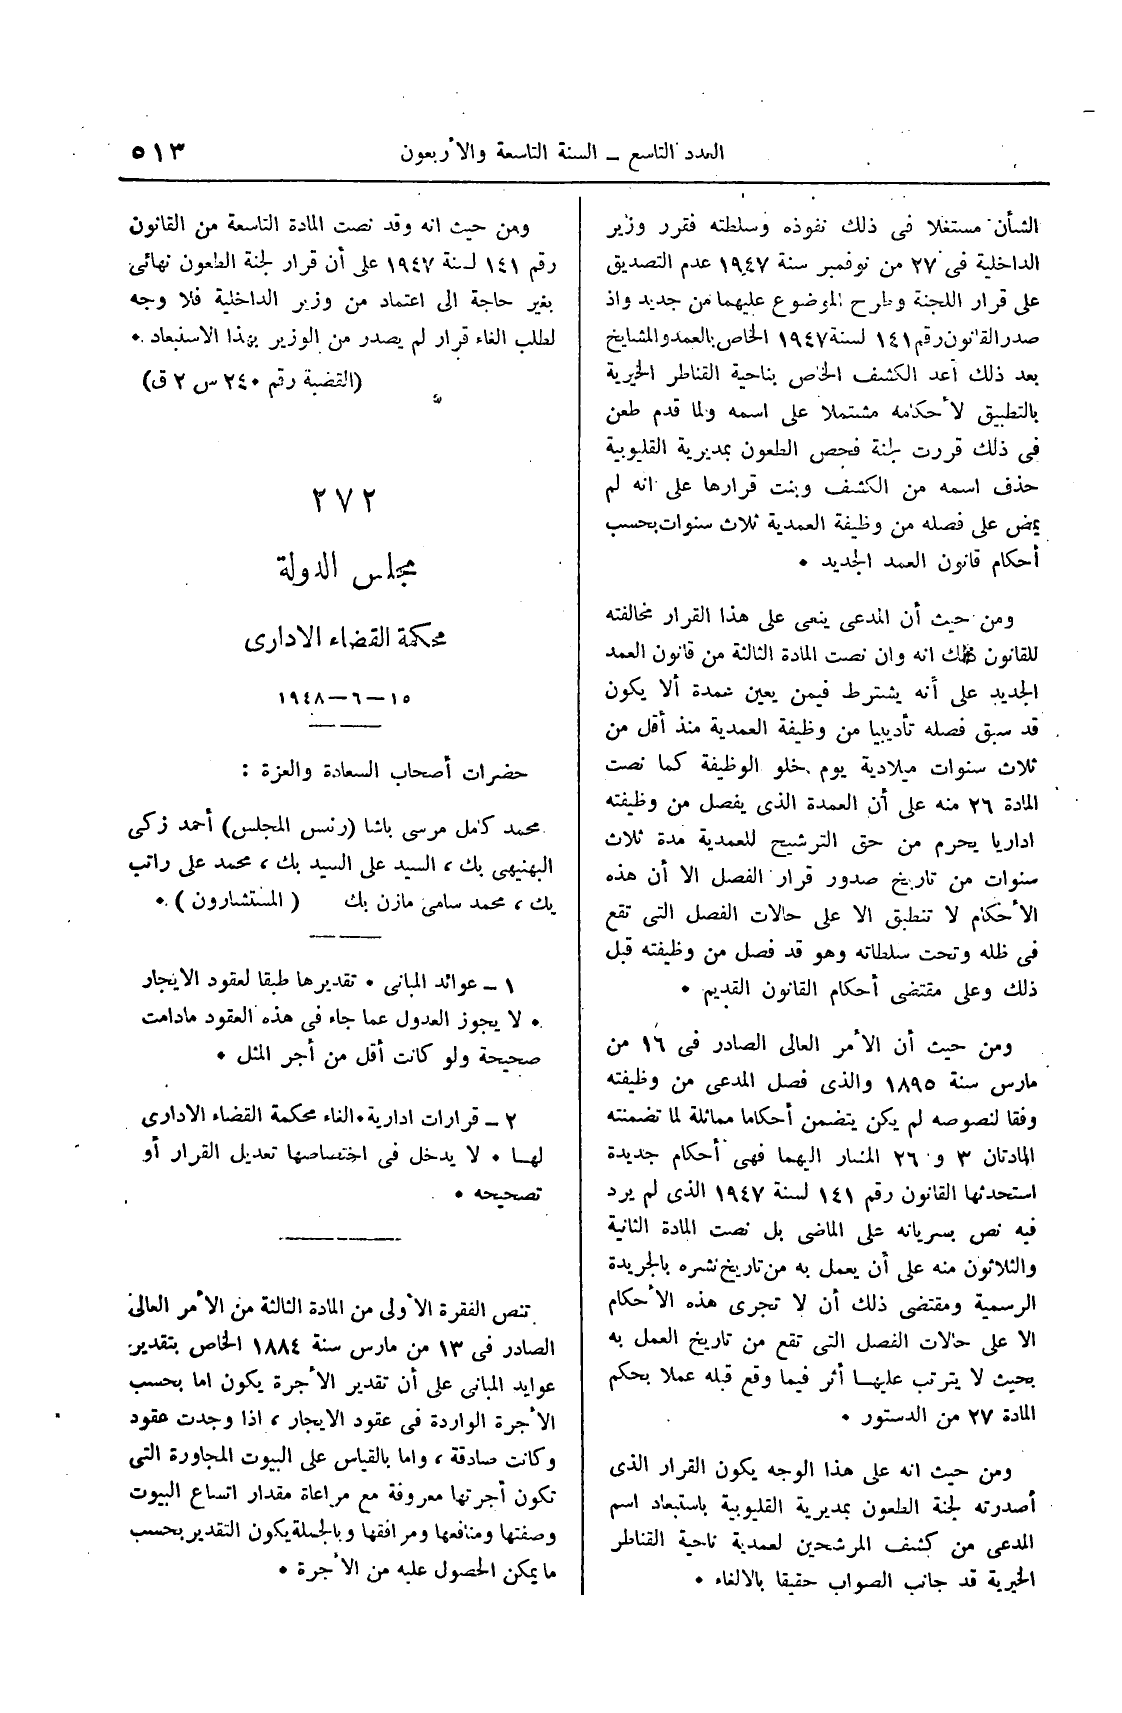 العدد التاسع – السنة التاسعة والأربعون
٥١٣
الشأن مستغلا فى ذلك نفوذه وسلطته فقرر وزير
الداخلية فى ٢٧ من نوفمبر سنة ١٩٤٧ عدم التصديق
على قرار اللجنة وطرح الموضوع عليهما من جديد واذ
صدر القانون رقم ١٤١ لسنة ١٩٤٧ الخاص بالعمد والمشايخ
بعد ذلك أعد الكشف الخاص بناحية القناطر الخيرية
بالتطبيق لأحكامه مشتملا على اسمه ولما قدم طعن
فى ذلك قررت لجنة فحص الطعون بمديرية القليوبية
حذف اسمه من الكشف وبنت قرارها على انه لم
يمض على فصله من وظيفة العمدية ثلاث سنوات بحسب
أحكام قانون العمد الجديد .
ومن حيث أن المدعى ينعى على هذا القرار مخالفته
للقانون انه وان نصت المادة الثالثة من قانون العمد
الجديد على أنه يشترط فيمن يعين عمدة ألا يكون
قد سبق فصله تأديبيا من وظيفة العمدية منذ أقل من
ثلاث سنوات ميلادية يوم خلو الوظيفة كما نصت
المادة ٢٦ منه على أن العمدة الذى يفصل من وظيفته
اداريا يحرم من حق الترشيح للعمدية مدة ثلاث
سنوات من تاريخ صدور قرار الفصل الا أن هذه
الأحكام لا تنطبق الا على حالات الفصل التى تقع
فى ظله وتحت سلطاته وهو قد فصل من وظيفته قبل
ذلك وعلى مقتضى أحكام القانون القديم .
ومن حيث أن الأمر العالى الصادر فى ١٦ من
مارس سنة ١٨٩٥ والذى فصل المدعى من وظيفته
وفقا لنصوصه لم يكن يتضمن أحكاما مماثلة لما تضمنته
المادتان ٣ و ٢٦ المشار اليهما فهى أحكام جديدة
استحدثها القانون رقم ١٤١ لسنة ١٩٤٧ الذى لم يرد
فيه نص بسريانه على الماضى بل نصت المادة الثانية
والثلاثون منه على أن يعمل به من تاريخ نشره بالجريدة
الرسمية ومقتضى ذلك أن لا تجرى هذه الأحكام
الا على حالات الفصل التى تقع من تاريخ العمل به
بحيث لا يترتب عليها أثر فيما وقع قبله عملا بحكم
المادة ٢٧ من الدستور .
ومن حيث انه على هذا الوجه يكون القرار الذى
أصدرته لجنة الطعون بمديرية القليوبية باستبعاد اسم
المدعى من كشف المرشحين لعمدية ناحية القناطر
الخيرية قد جانب الصواب حقيقا بالالغاء .
ومن حيث انه وقد نصت المادة التاسعة من القانون
رقم ١٤١ لسنة ١٩٤٧ على أن قرار لجنة الطعون نهائى
بغير حاجة الى اعتماد من وزير الداخلية فلا وجه
لطلب الغاء قرار لم يصدر من الوزير بهذا الاستبعاد .
(القضية رقم ٢٤٠ س ٢ ق)
٢٧٢
مجلس الدولة
محكمة القضاء الادارى
١٥ – ٦ – ١٩٤٨
حضرات أصحاب السعادة والعزة :
محمد كامل مرسى باشا (رئيس المجلس) أحمد زكى
البهنيهى بك ، السيد على السيد بك ، محمد على راتب
بك ، محمد سامى مازن بك (المستشارون) .
١ – عوائد المبانى . تقديرها طبقا لعقود الايجار
. لا يجوز العدول عما جاء فى هذه العقود مادامت
صحيحة ولو كانت أقل من أجر المثل .
٢ – قرارات ادارية . الغاء محكمة القضاء الادارى
لها . لا يدخل فى اختصاصها تعديل القرار أو
تصحيحه .
تنص الفقرة الأولى من المادة الثالثة من الأمر العالى
الصادر فى ١٣ من مارس سنة ١٨٨٤ الخاص بتقدير
عوايد المبانى على أن تقدير الأجرة يكون اما بحسب
الأجرة الواردة فى عقود الايجار ، اذا وجدت عقود
وكانت صادقة ، واما بالقياس على البيوت المجاورة التى
تكون أجرتها معروفة مع مراعاة مقدار اتساع البيوت
وصفتها ومنافعها ومرافقها وبالجملة يكون التقدير بحسب
ما يمكن الحصول عليه من الأجرة .